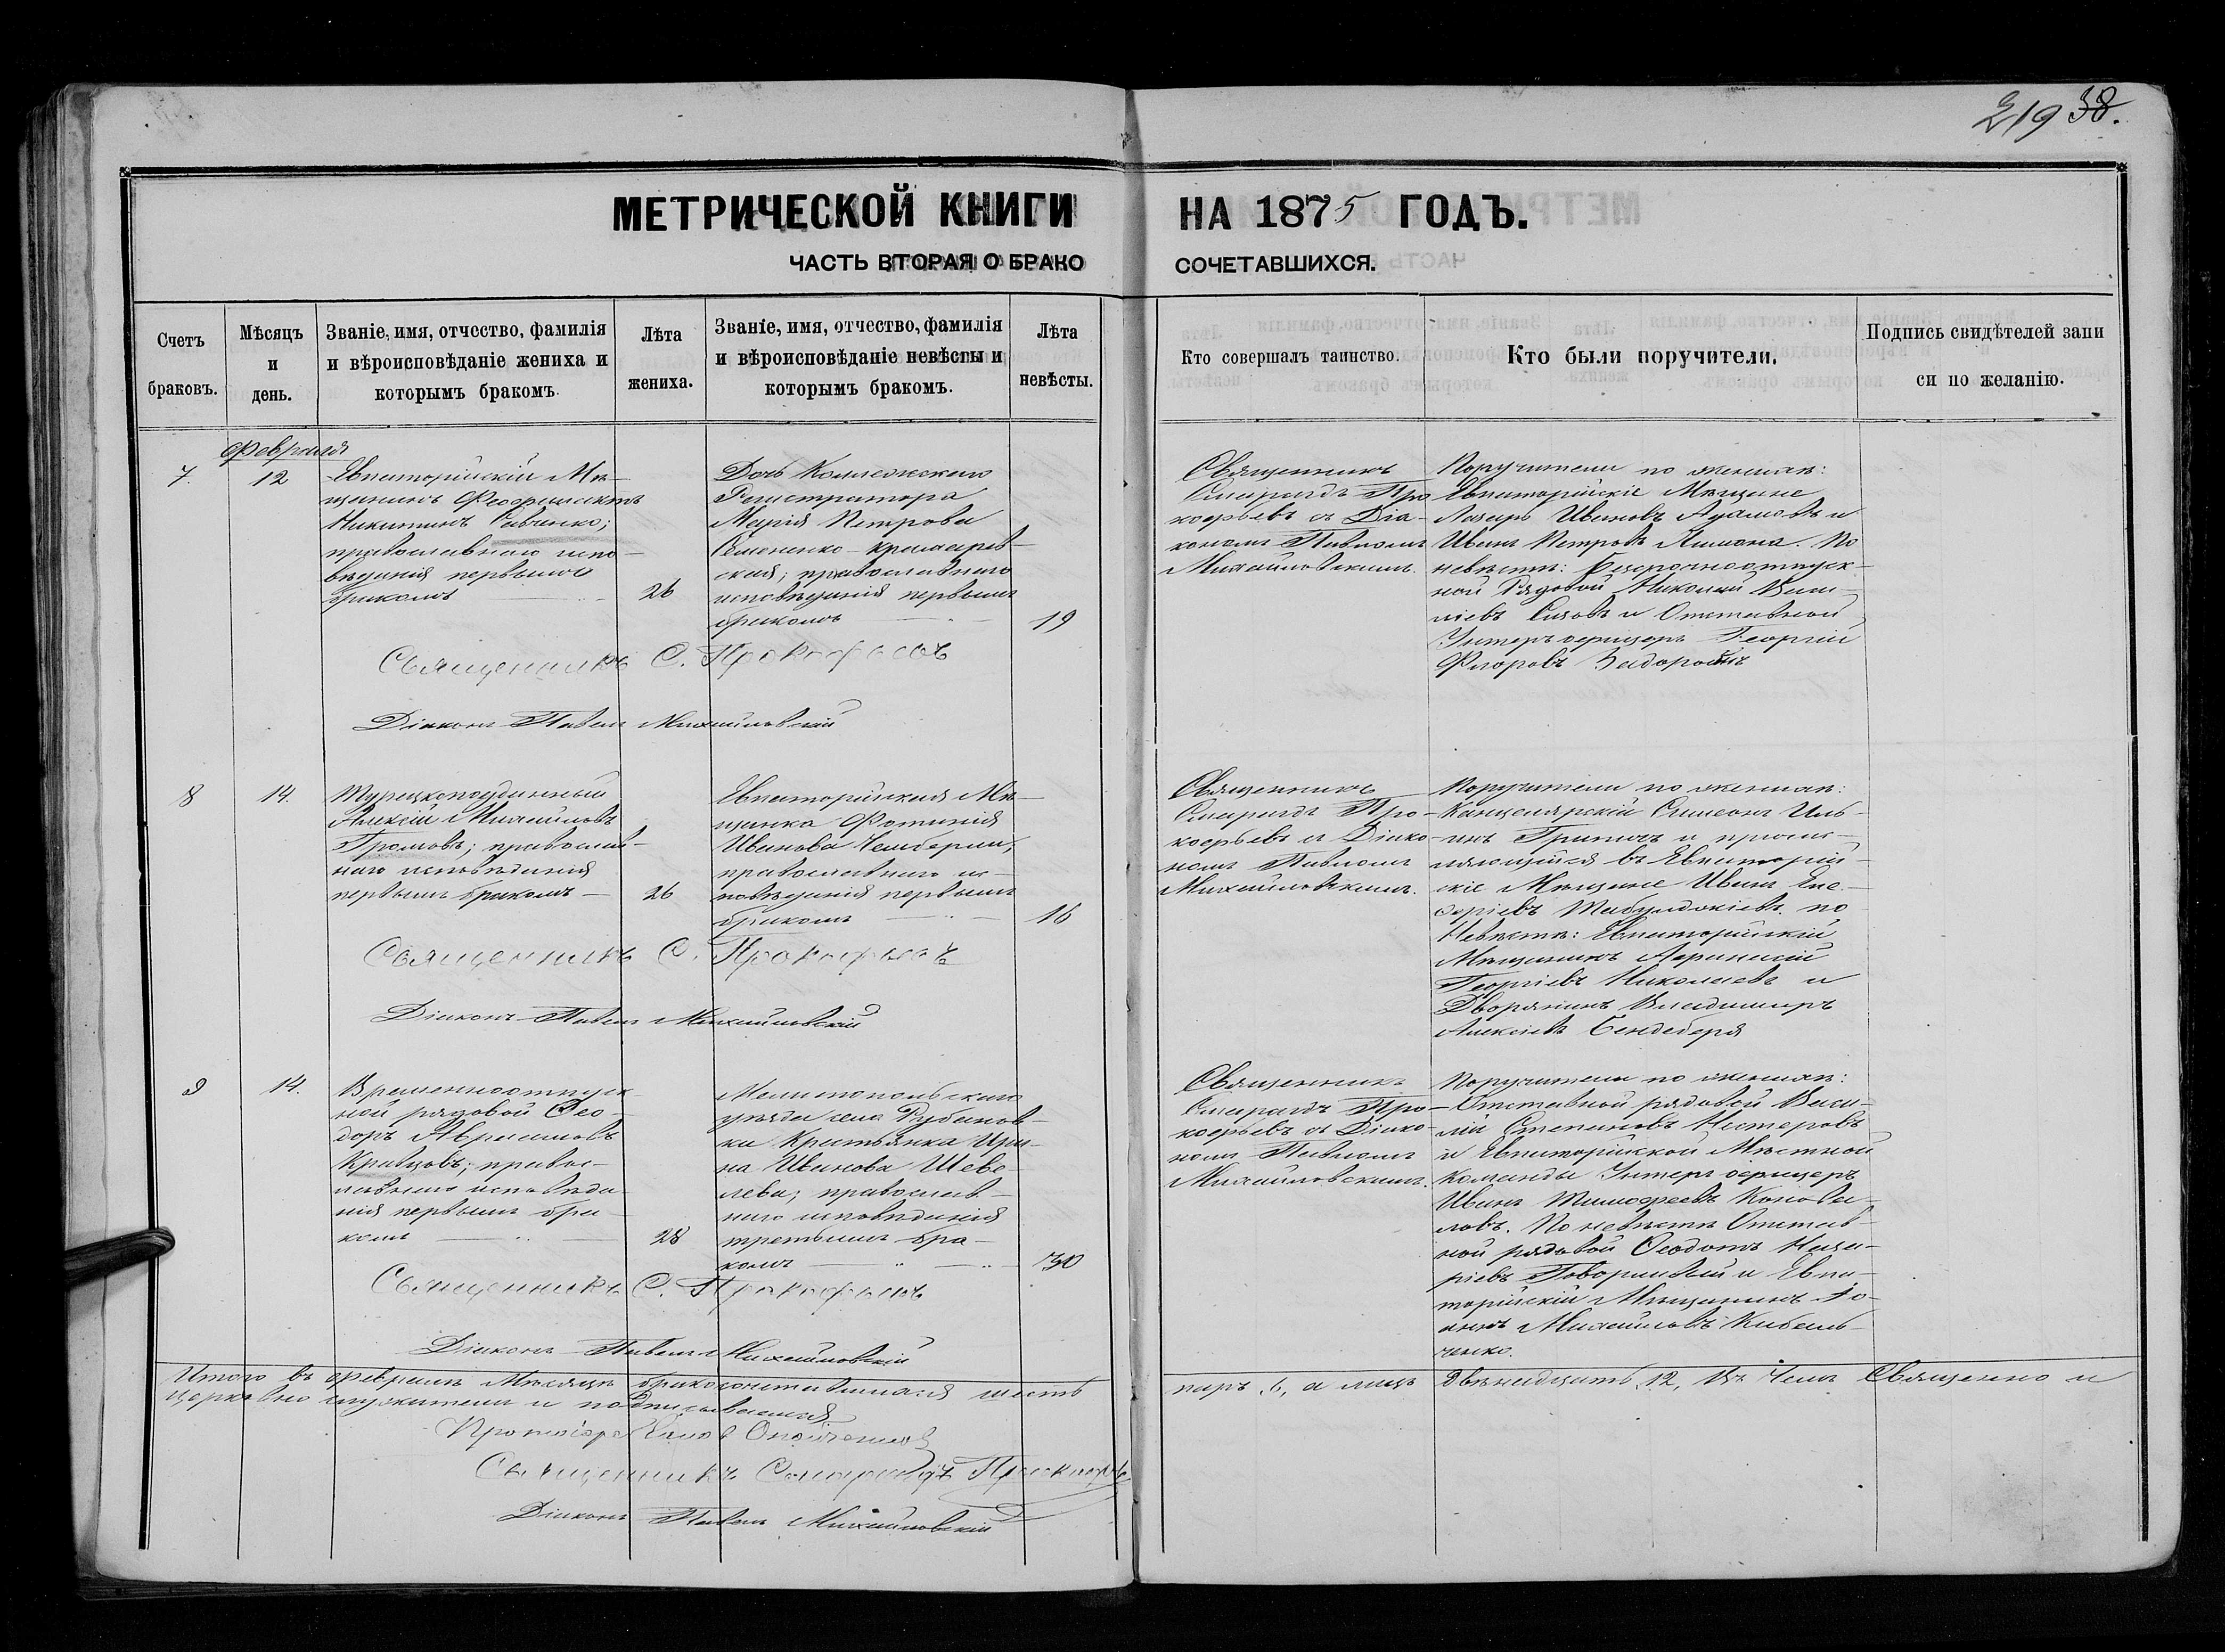 219 38.
МЕТРИЧЕСКОЙ КНИГИ НА 1875 ГОДЪ.
ЧАСТЬ ВТОРАЯ О БРАКО СОЧЕТАВШИХСЯ.
Счетъ браковъ.
Мѣсяцъ и день.
Званіе, имя, отчество, фамилія
и вѣроисповѣданіе жениха и
которымъ бракомъ.
Лѣта жениха.
Званіе, имя, отчество, фамилія
и вѣроисповѣданіе невѣсты и
которымъ бракомъ.
Лѣта невѣсты.
Кто совершалъ таинство.
Кто были поручители.
Подпись свидѣтелей запи
си по желанію.
Февраля
7.
12
Евпаторійскій Мѣ-
щанинъ Феофилактъ
Никитинъ Савченко;
православнаго испо-
вѣданія первымъ
бракомъ
26
Дочь Коллежскаго
Регистратора
Марія Петрова
Семененко-Крамарев-
ская; православнаго
исповѣданія первымъ
бракомъ
19
Священникъ
Смарагдъ Про
кофьевъ съ Діа-
кономъ Павломъ
Михайловскимъ.
Поручители по женихѣ:
Евпаторійскіе Мѣщане
Лазарь Ивановъ Адамовъ и
Иванъ Петровъ Лимона. По
невѣстѣ: Безсрочноотпуск-
ной Рядовой Николай Васи-
ліевъ Сизовъ и Отставной
Унтеръ офицеръ Георгій
Флоровъ
Священникъ С. Прокофьевъ
Діаконъ Павелъ Михайловскій
8
14.
Турецкоподданный
Алексій Михайловъ
Громовъ; православ-
наго исповѣданія
первымъ бракомъ
26
Евпаторійская Мѣ-
щанка Фотинія
Иванова
православнаго ис-
повѣданія первымъ
бракомъ
16
Священникъ
Смарагдъ Про-
кофьевъ съ Діако-
номъ Павломъ
Михайловскимъ.
Поручители по женихѣ:
Канцелярскій Симеонъ Иль-
инъ и причис-
ляющійся въ Евпаторій-
скіе Мѣщане Иванъ Еле-
феріевъ по
Невѣстѣ: Евпаторійскій
Мѣщанинъ Афанасій
Георгіевъ Николаевъ и
Дворянинъ Владимиръ
Алексѣевъ Бендеберя
Священникъ С. Прокофьевъ
Діаконъ Павелъ Михайловскій
9
14.
Временноотпуск
ной рядовой Фео-
доръ Абрамовъ
Кравцовъ; правос-
лавнаго исповѣда-
нія первымъ бра-
комъ
28
Мелитопольскаго
уѣзда села Рубанов-
ки Крестьянка Ири-
на Иванова Шеве-
лева; православ-
наго исповѣданія
третьимъ бра-
комъ
30
Священникъ
Смарагдъ Про-
кофьевъ съ Діако-
номъ Павломъ
Михайловскимъ.
Поручители по женихѣ:
Отставной рядовой Васи-
лій Степановъ Нестеровъ
и Евпаторійской Мѣстной
Команды Унтеръ офицеръ
Иванъ Тимофеевъ Конова-
ловъ. По невѣстѣ Отстав-
ной рядовой Феодотъ Наза-
ріевъ Говорливый и Евпа-
торійскій Мѣщанинъ Іо-
аннъ Михайловъ Кибаль-
ченко.
Священникъ С. Прокофьевъ
Діаконъ Павелъ Михайловскій
Итого въ февралѣ Мѣсяцѣ бракосочетавшихся шесть паръ 6, а лицъ двѣнадцать 12, Въ Чемъ Священно и
церковно служители и подписываемся
Протоіерей
Священникъ Смарагдъ Прокофьевъ
Діаконъ Павелъ Михайловскій